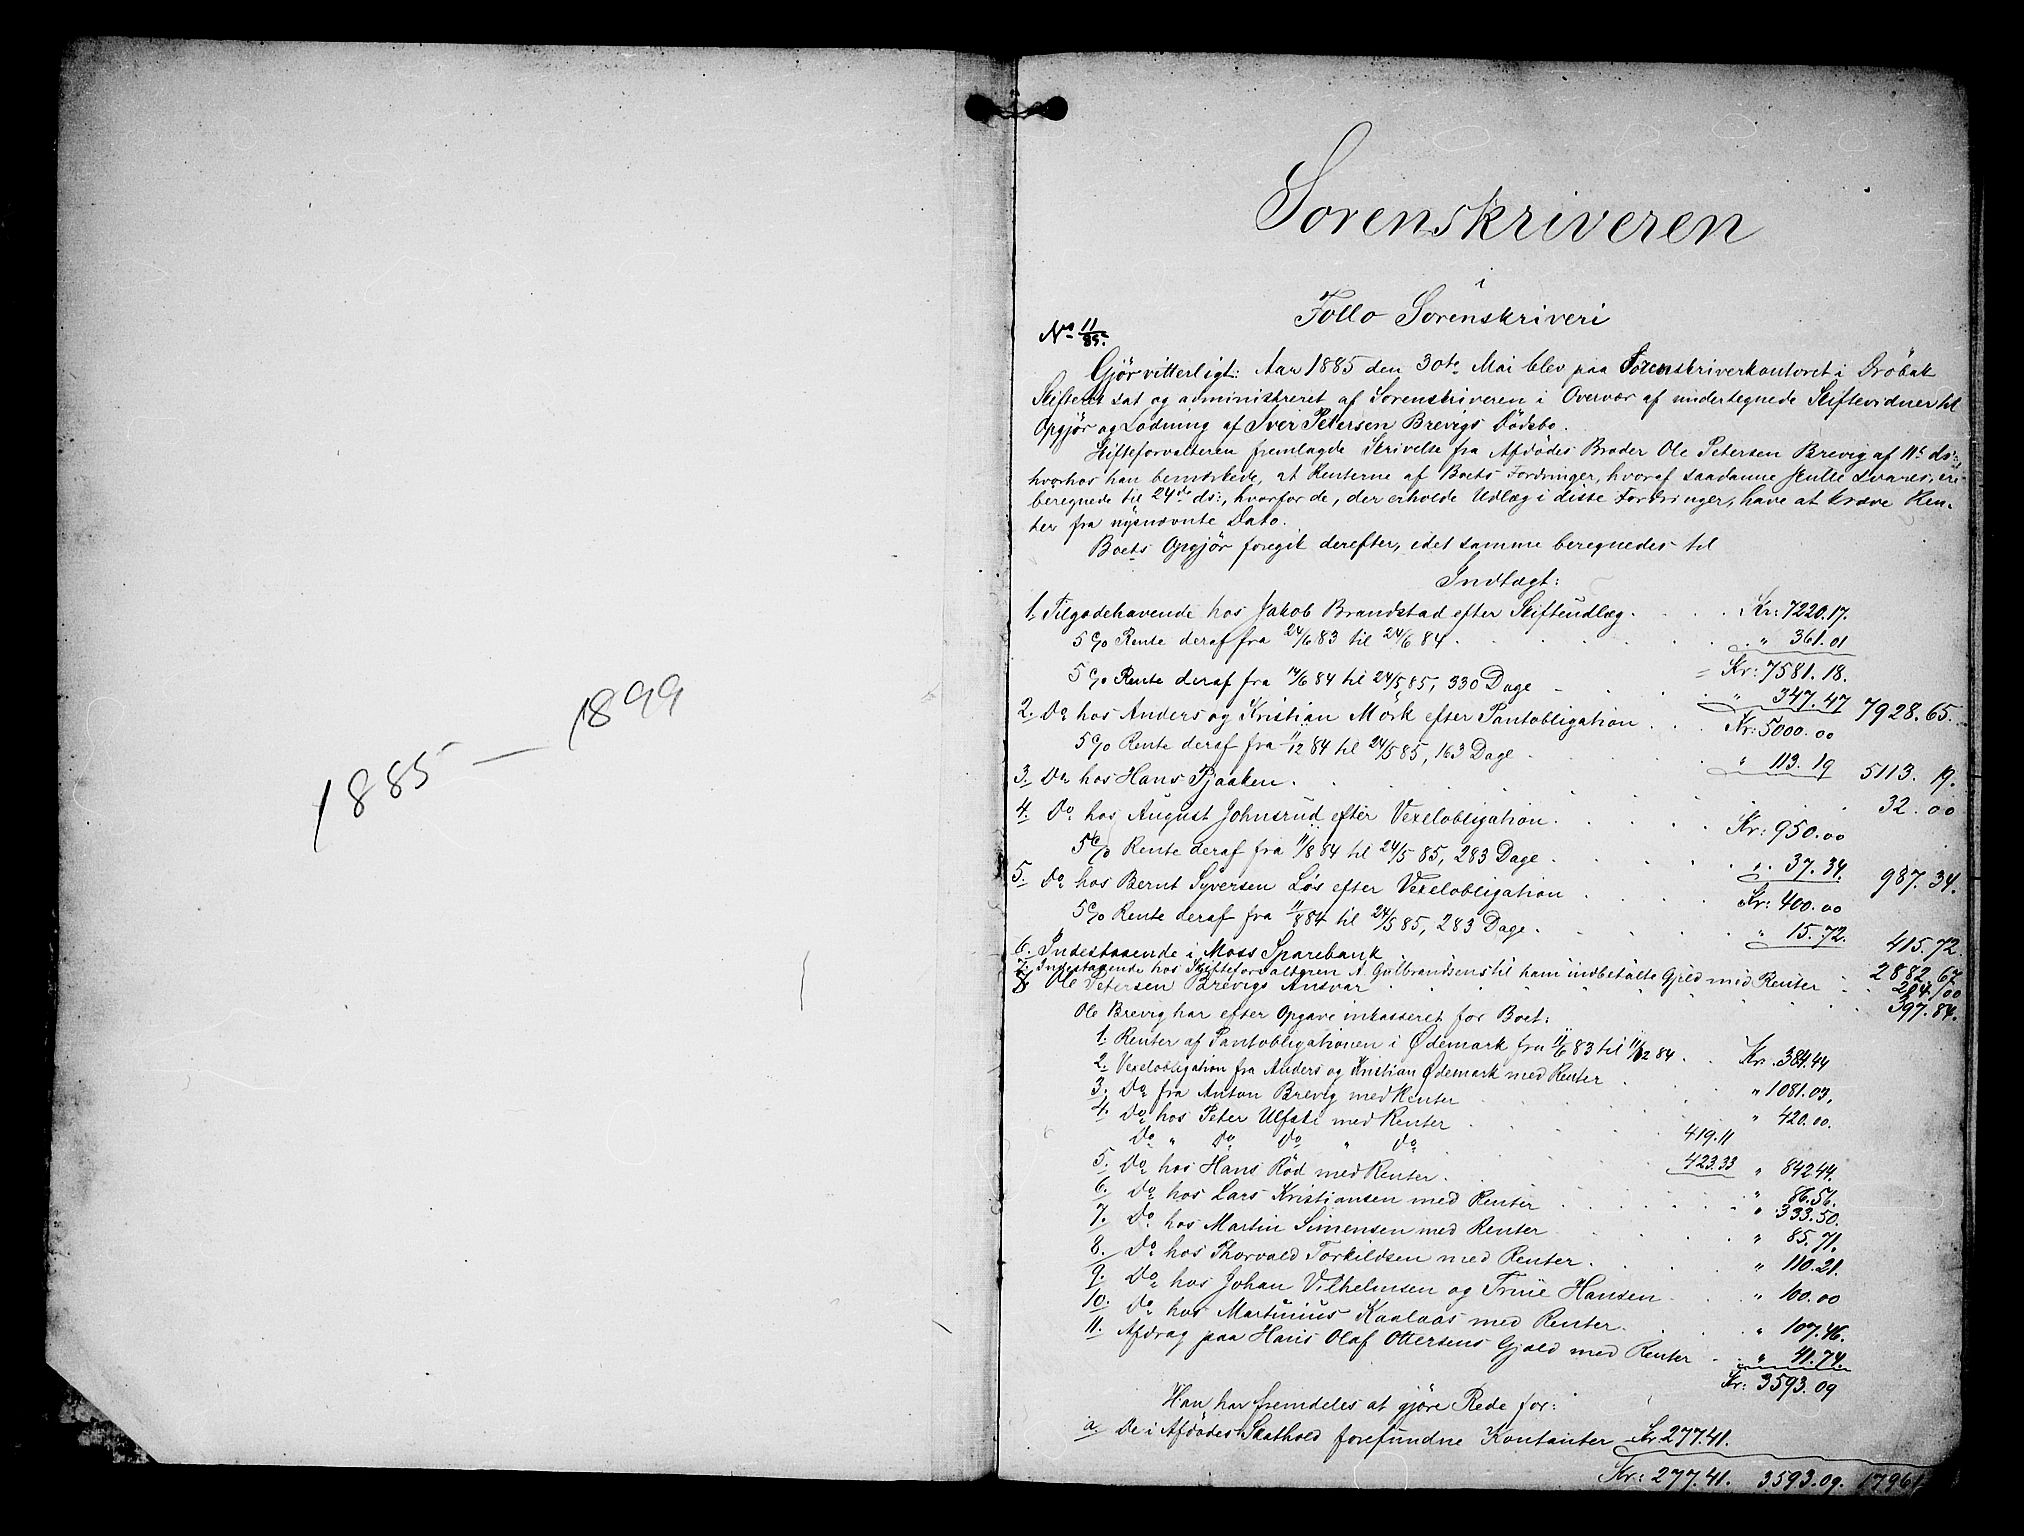 1885 — 1899
Sorenskriveren
i
Follo Sorenskriveri
No 11/85.
Gjör vitterligt: Aar 1885 den 30te Mai blev paa Sorenskriverkontoret i Dröbak
Skifteret sat og administreret af Sorenskriveren i Overvær af undertegnede Skiftevidner til
Opgjör og Lodning af Iver Petersen Brevigs Dödsbo.
Skifteforvalteren fremlagde Skrivelse fra Afdödes Broder Ole Petersen Brevig af 11te ds:,
hvorhos han bemærkede, at Renterne af Boets Fordringer, hvoraf saadanne skulle svares, ere
beregnede til 24de ds:, hvorfor de, der erholde Udlæg i disse Fordringer, have at kræve Ren-
ter fra nysnævnte Dato.
Boets Opgjör foregik derefter, idet samme beregnedes til
Indtægt:
1. Tilgodehavende hos Jakob Brandstad efter Skifteudlæg . Kr: 7220.17.
5 % Rente deraf fra 24/6 83 til 24/6 84 . " 361.01
Kr: 7581.18.
5 % Rente deraf fra 24/6 84 til 24/5 85, 330 Dage " 347.47 7928.65.
2. Do hos Anders og Kristian Mörk efter Pantobligation . Kr: 5000.00
5 % Rente deraf fra 11/12 84 til 24/5 85, 163 Dage . " 113.19 5113.19.
3. Do hos Hans Tjaaken . 32.00
4. Do hos August Johnsrud efter Vexelobligation . Kr: 950.00
5 % Rente deraf fra 11/8 84 til 24/5 85, 283 Dage . " 37.34. 987.34.
5. Do hos Bernt Syversen Lös efter Vexelobligation Kr: 400.00
5 % Rente deraf fra 11/8 84 til 24/5 85, 283 Dage . " 15.72. 415.72
6. Indestaaende i Moss Sparebank 2882.67
7. Indestaaende hos Skifteforvalteren A. Gulbrandsens til ham indbetalte Gjeld med Renter 204.00
8. Ole Petersen Brevigs Ansvar 397.84.
Ole Brevig har efter Opgave inkasseret for Boet:
1. Renter af Pantobligationen i Ødemark fra 11/6 83 til 11/12 84 . Kr. 384.44
2. Vexelobligation fra Anders og Kristian Ødemark med Renter " 1081.03,
3. Do fra Anton Brevig med Renter " 420.00.
4. Do hos Peter Ulfsti med Renter 419.11
Do " Do Do " Do 423.33 " 842.44.
5. Do hos Hans Röd med Renter . " 86.56.
6. Do hos Lars Kristiansen med Renter " 333.50.
7. Do hos Martin Simensen med Renter " 85.71.
8. Do hos Thorvald Torkildsen med Renter . " 110.21.
9. Do hos Johan Vilhelmsen og Trine Hansen " 100.00
10. Do hos Martinius Kaalaas med Renter . " 107.46.
11. Afdrag paa Hans Olaf Ottersens Gjæld med Renter . " 41.74.
Kr: 3593.09
Han har fremdeles at gjöre Rede for:
a. De i Afdödes Skathold forefundne Kontanter Kr. 277.41.
Kr: 277.41. 3593.09. 17961